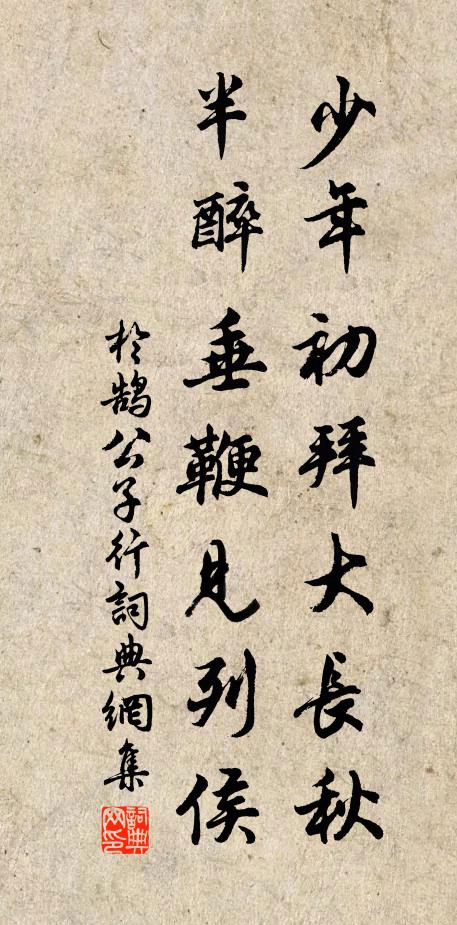 少年初拜大長秋
半醉垂鞭見列侯
於鵠公子行詞典網集
詞典网印